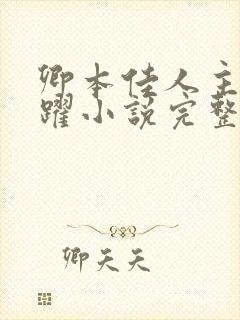 卿本佳人主
躍小說完整
卿天天